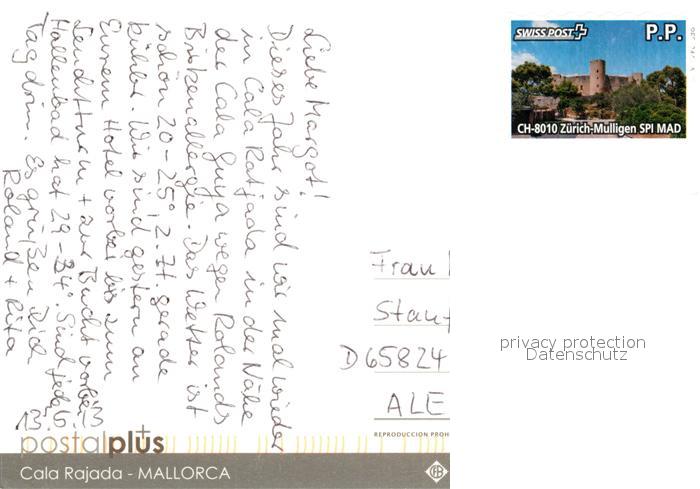 Liebe Margot!
Dieses Jahr sind wir mal wieder
in Cala Ratjada in der Nähe
der Cala Guya wegen Rolands
Birkenallergie. Das Wetter ist
schön 20-25°, z. Zt. gerade
kühl. Wir sind gestern an
Eurem Hotel vorbei bis zum
Leuchtturm + zur Bucht vorbei.
Hallenbad hat 29-34°. Sind jeden
Tag drin. Es grüßen Dich
Roland + Rita
13.5.13
SWISS POST P.P.
CH-8010 Zürich-Mulligen SPI MAD
Frau
Stauf
D 65824
ALE
REPRODUCCION PROH
privacy protection
Datenschutz
postalplus
Cala Rajada - MALLORCA